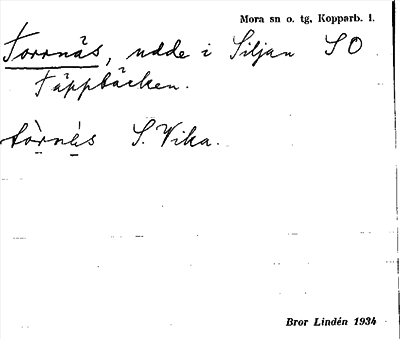 Mora sn o. tg, Kopparb. l.
Torrnäs, udde i Siljan SO
Täppbäcken.
tòrnès S. Vika.
Bror Lindén 1934